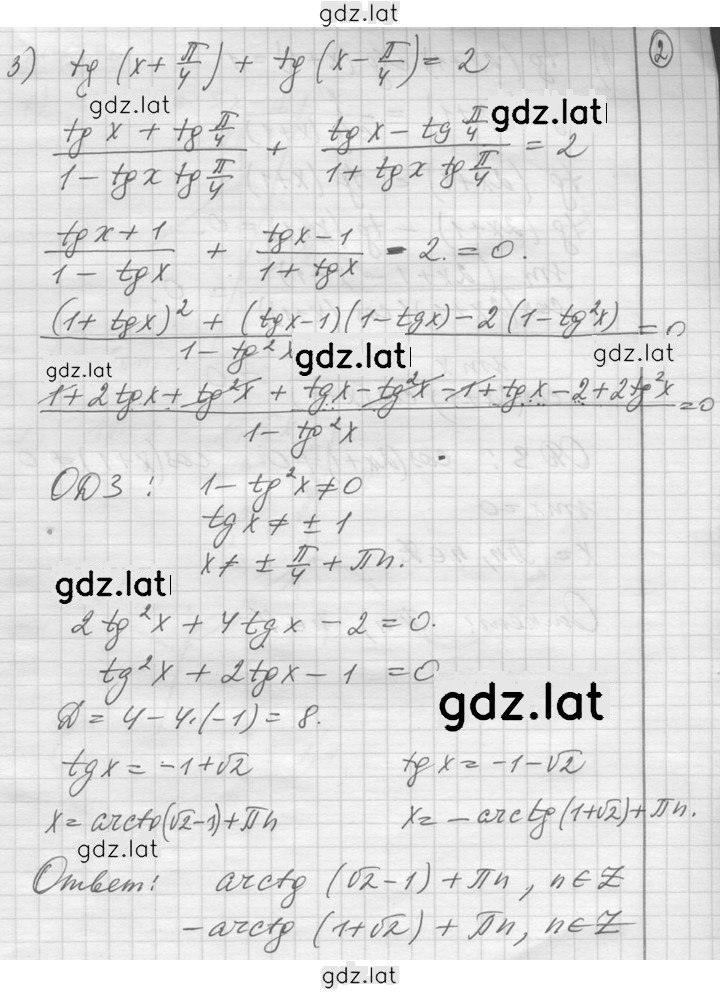 gdz.lat
3) tg (x + π/4) + tg (x - π/4) = 2
2
gdz.lat
gdz.lat
(tg x + tg π/4)/(1 - tg x tg π/4) + (tg x - tg π/4)/(1 + tg x tg π/4) = 2
(tg x + 1)/(1 - tg x) + (tg x - 1)/(1 + tg x) - 2. = 0.
((1 + tg x)² + (tg x - 1)(1 - tg x) - 2(1 - tg²x))/(1 - tg²x) = 0
gdz.lat
gdz.lat
gdz.lat
(1 + 2tg x + tg²x + tg x - tg²x - 1 + tg x - 2 + 2tg²x)/(1 - tg²x) = 0
ОДЗ : 1 - tg²x ≠ 0
tg x ≠ ± 1
x ≠ ± π/4 + πn.
gdz.lat
2tg²x + 4tg x - 2 = 0.
tg²x + 2tg x - 1 = 0
gdz.lat
Д = 4 - 4·(-1) = 8.
tg x = -1 + √2 tg x = -1 - √2
x = arctg(√2 - 1) + πn x = - arctg (1 + √2) + πn.
gdz.lat
Ответ: arctg (√2 - 1) + πn, n ∈ Z
- arctg (1 + √2) + πn, n ∈ Z
gdz.lat